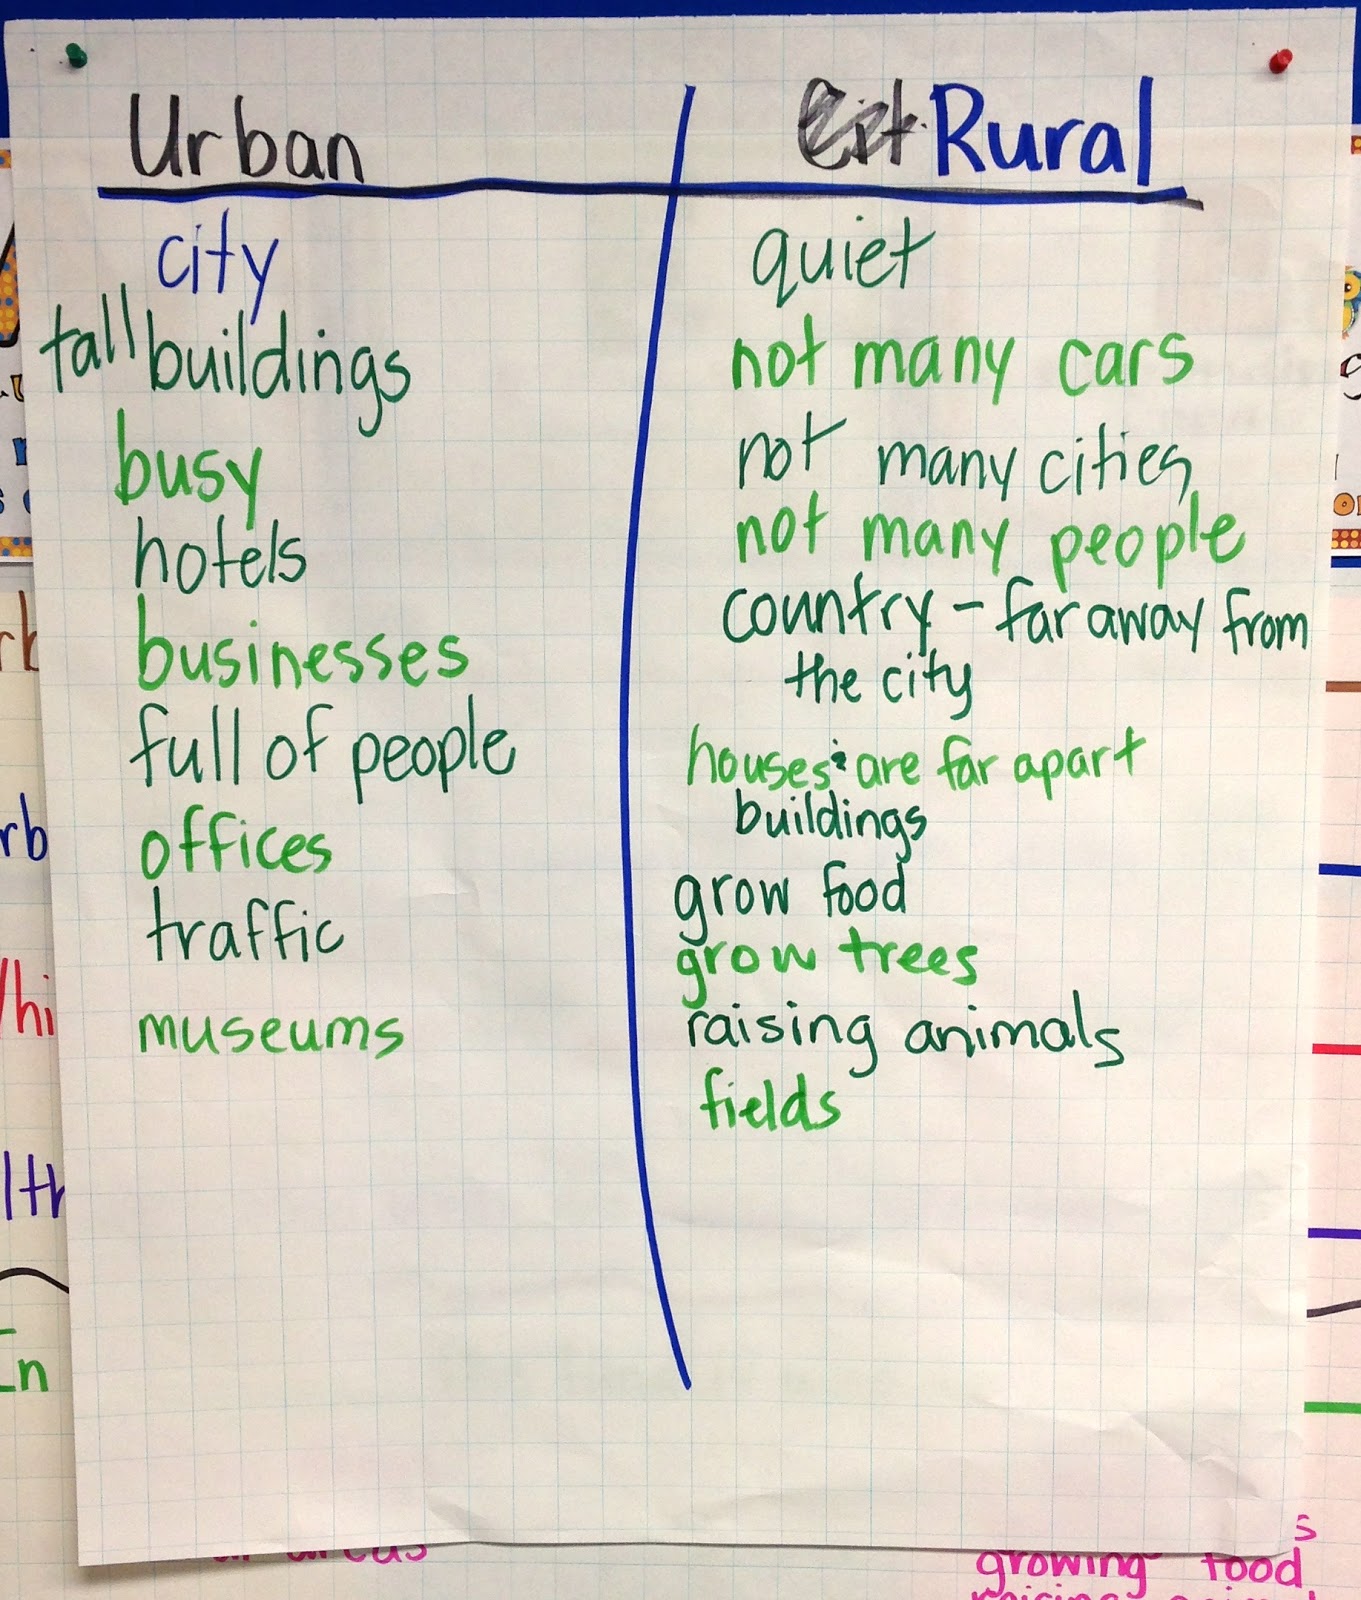 Urban
Rural
city
tall buildings
busy
hotels
businesses
full of people
offices
traffic
museums
quiet
not many cars
not many cities
not many people
country - far away from
the city
houses & are far apart
buildings
grow food
grow trees
raising animals
fields
growing food